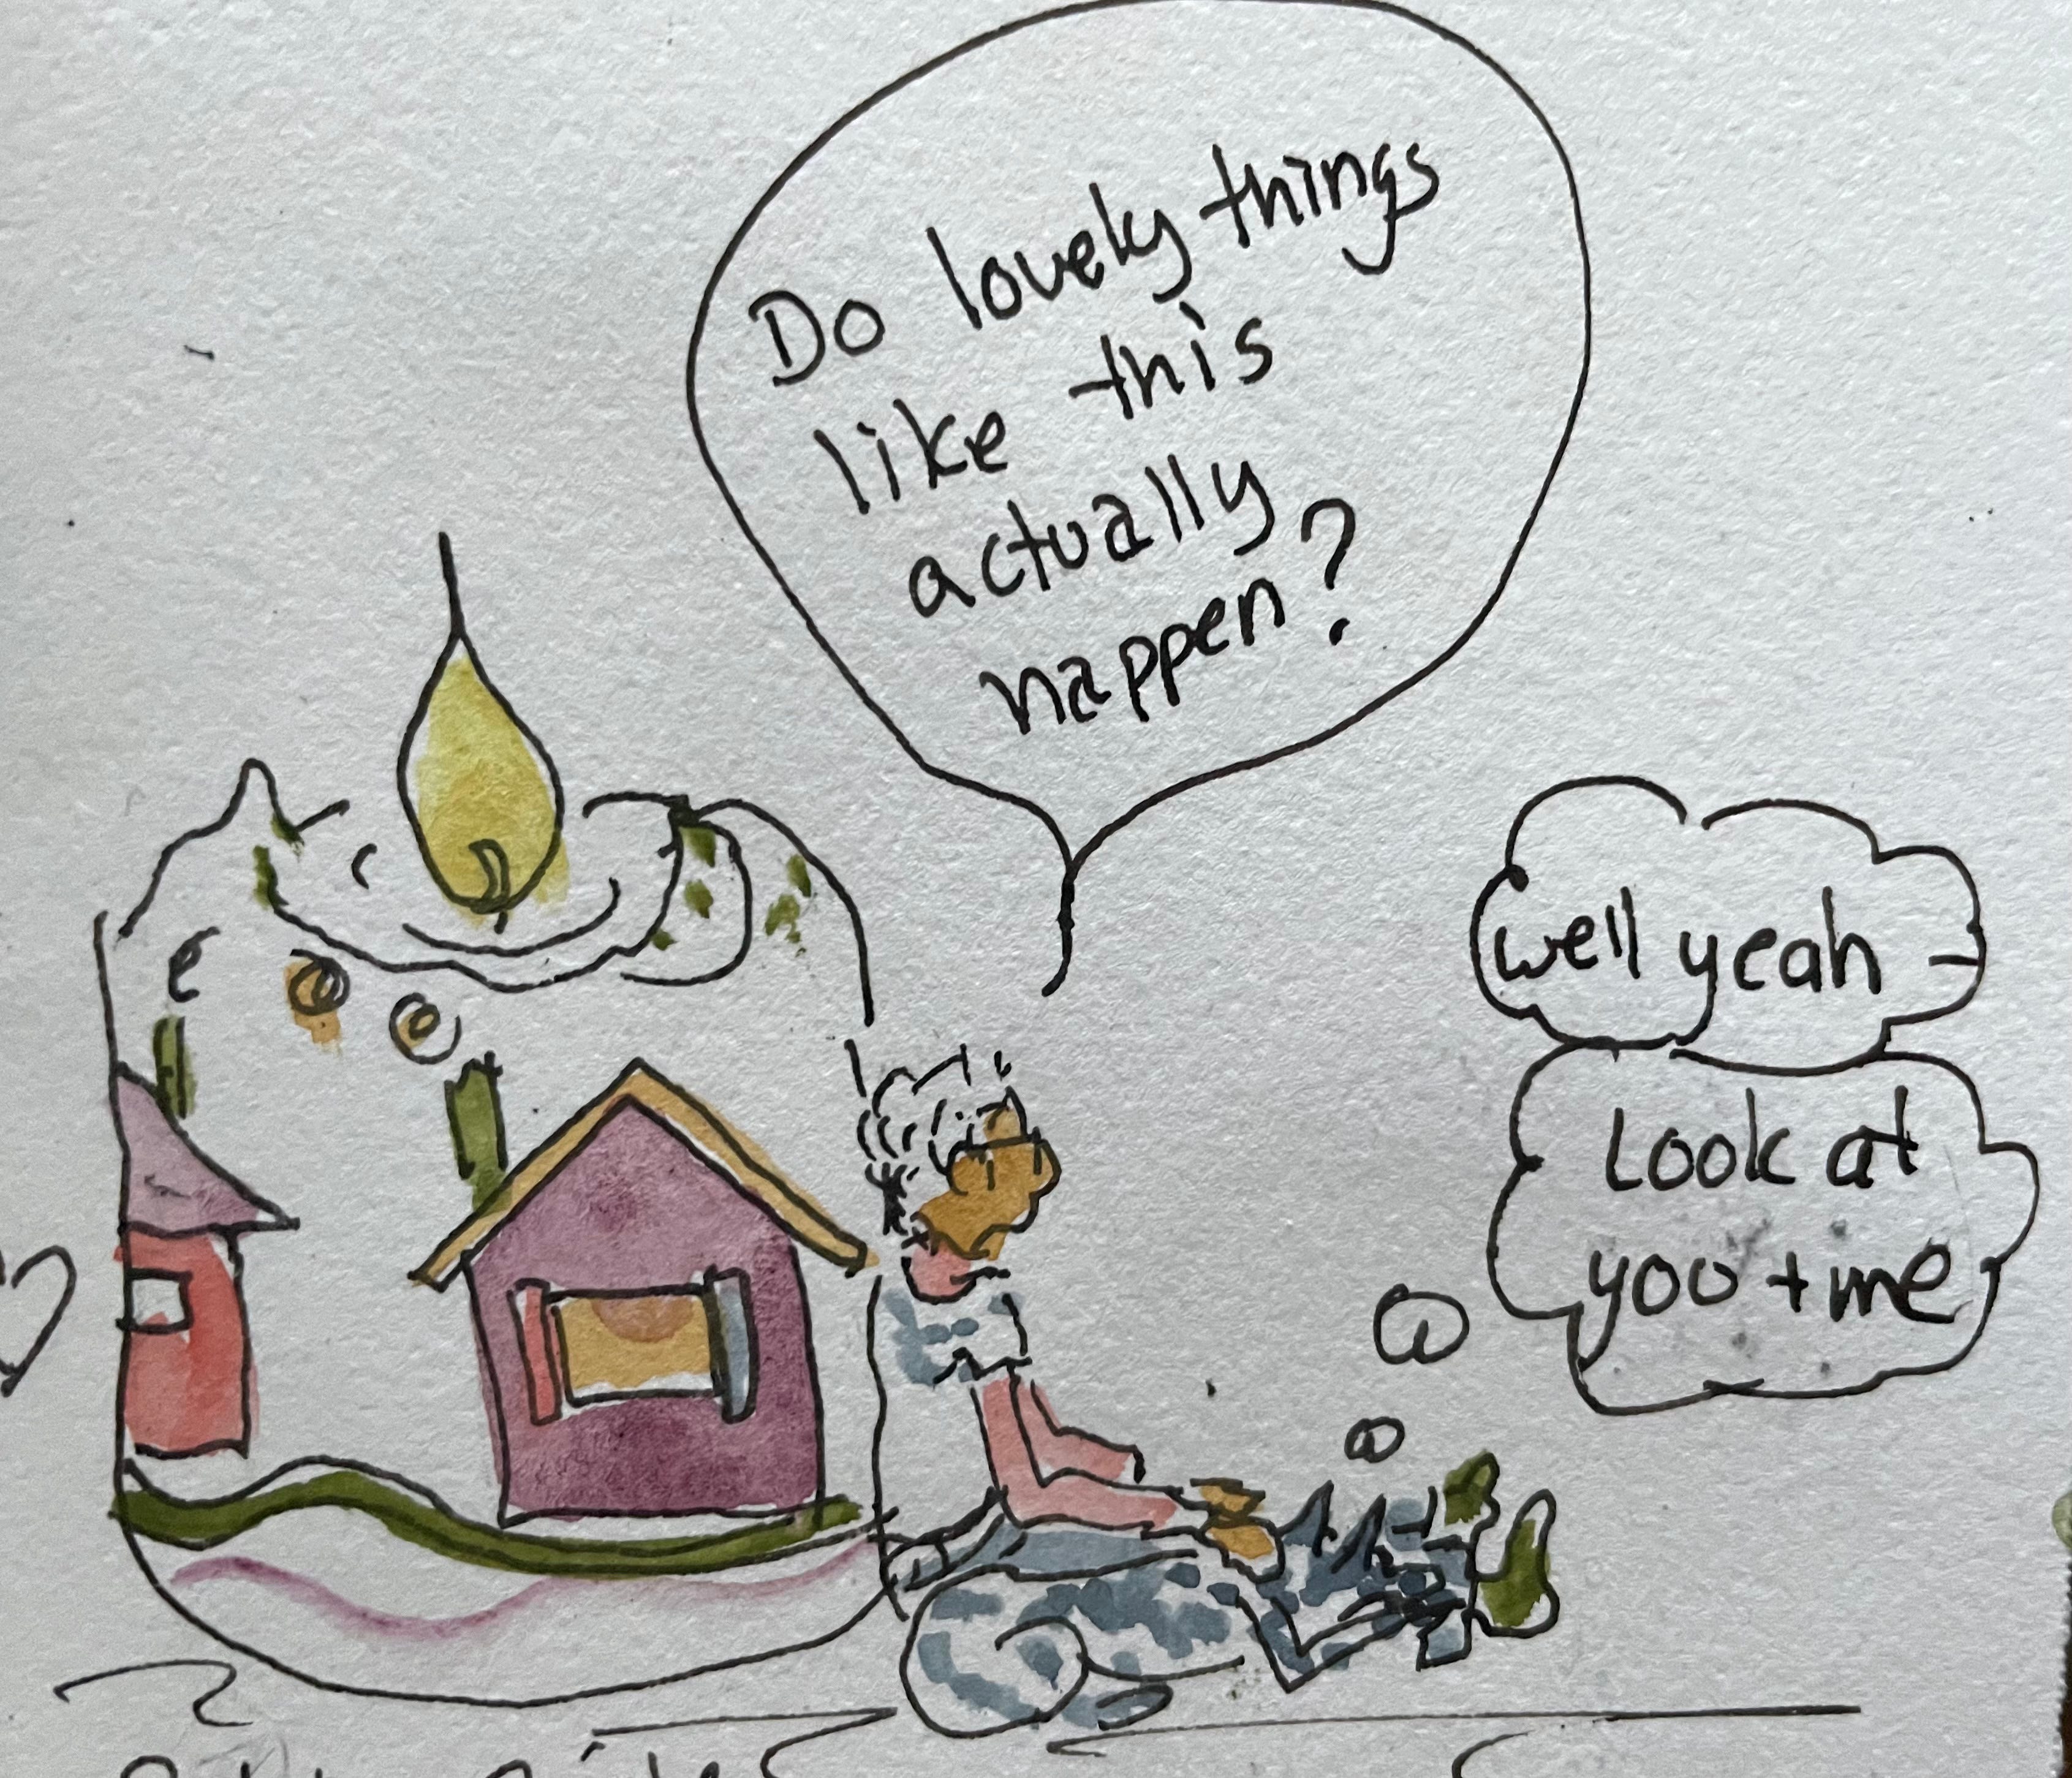 Do lovely things
like this
actually
happen?
well yeah
Look at
you + me